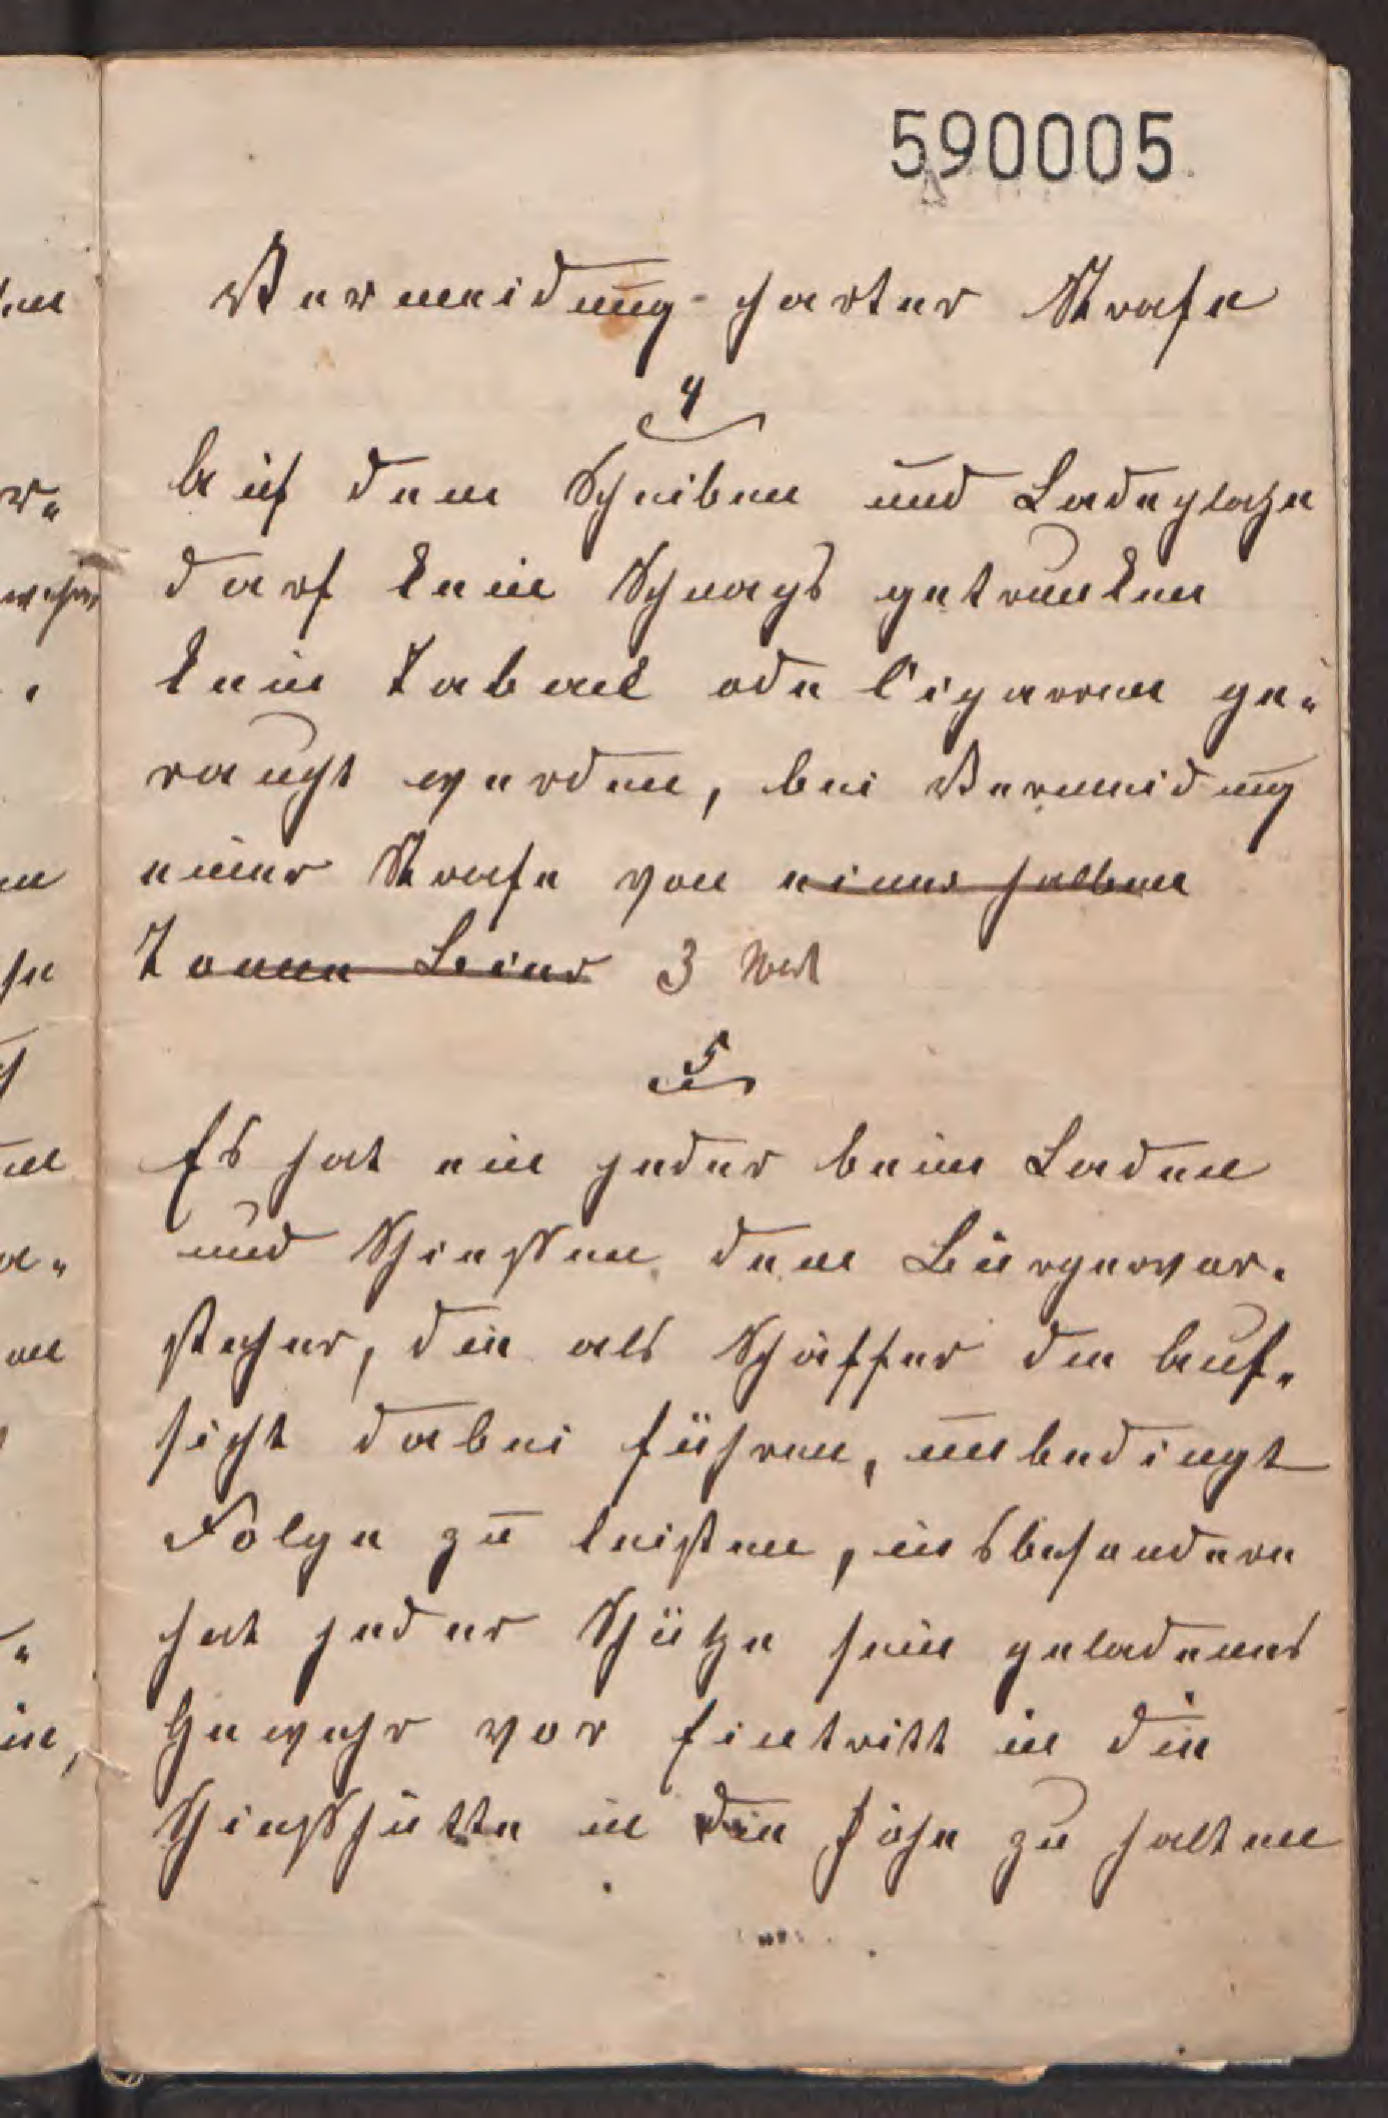 590005
Vermeidung harter Strafe
4
Auf dem Scheiben und Ladeplatze
darf kein Schnaps getrunken
kein Taback oder Cigarren ge-
raucht werden, bei Vermeidung
einer Strafe von einer halben
Tonne Bier 3 Mk
5
Es hat ein jeder beim Laden
und Schießen dem Bürgervor-
steher, die als Schäffer die Auf-
sicht dabei führen, unbedingt
Folge zu leisten, insbesondere
hat jeder Schütze sein geladenes
Gewehr vor Eintritt in die
Schießhütte in die Höhe zu halten